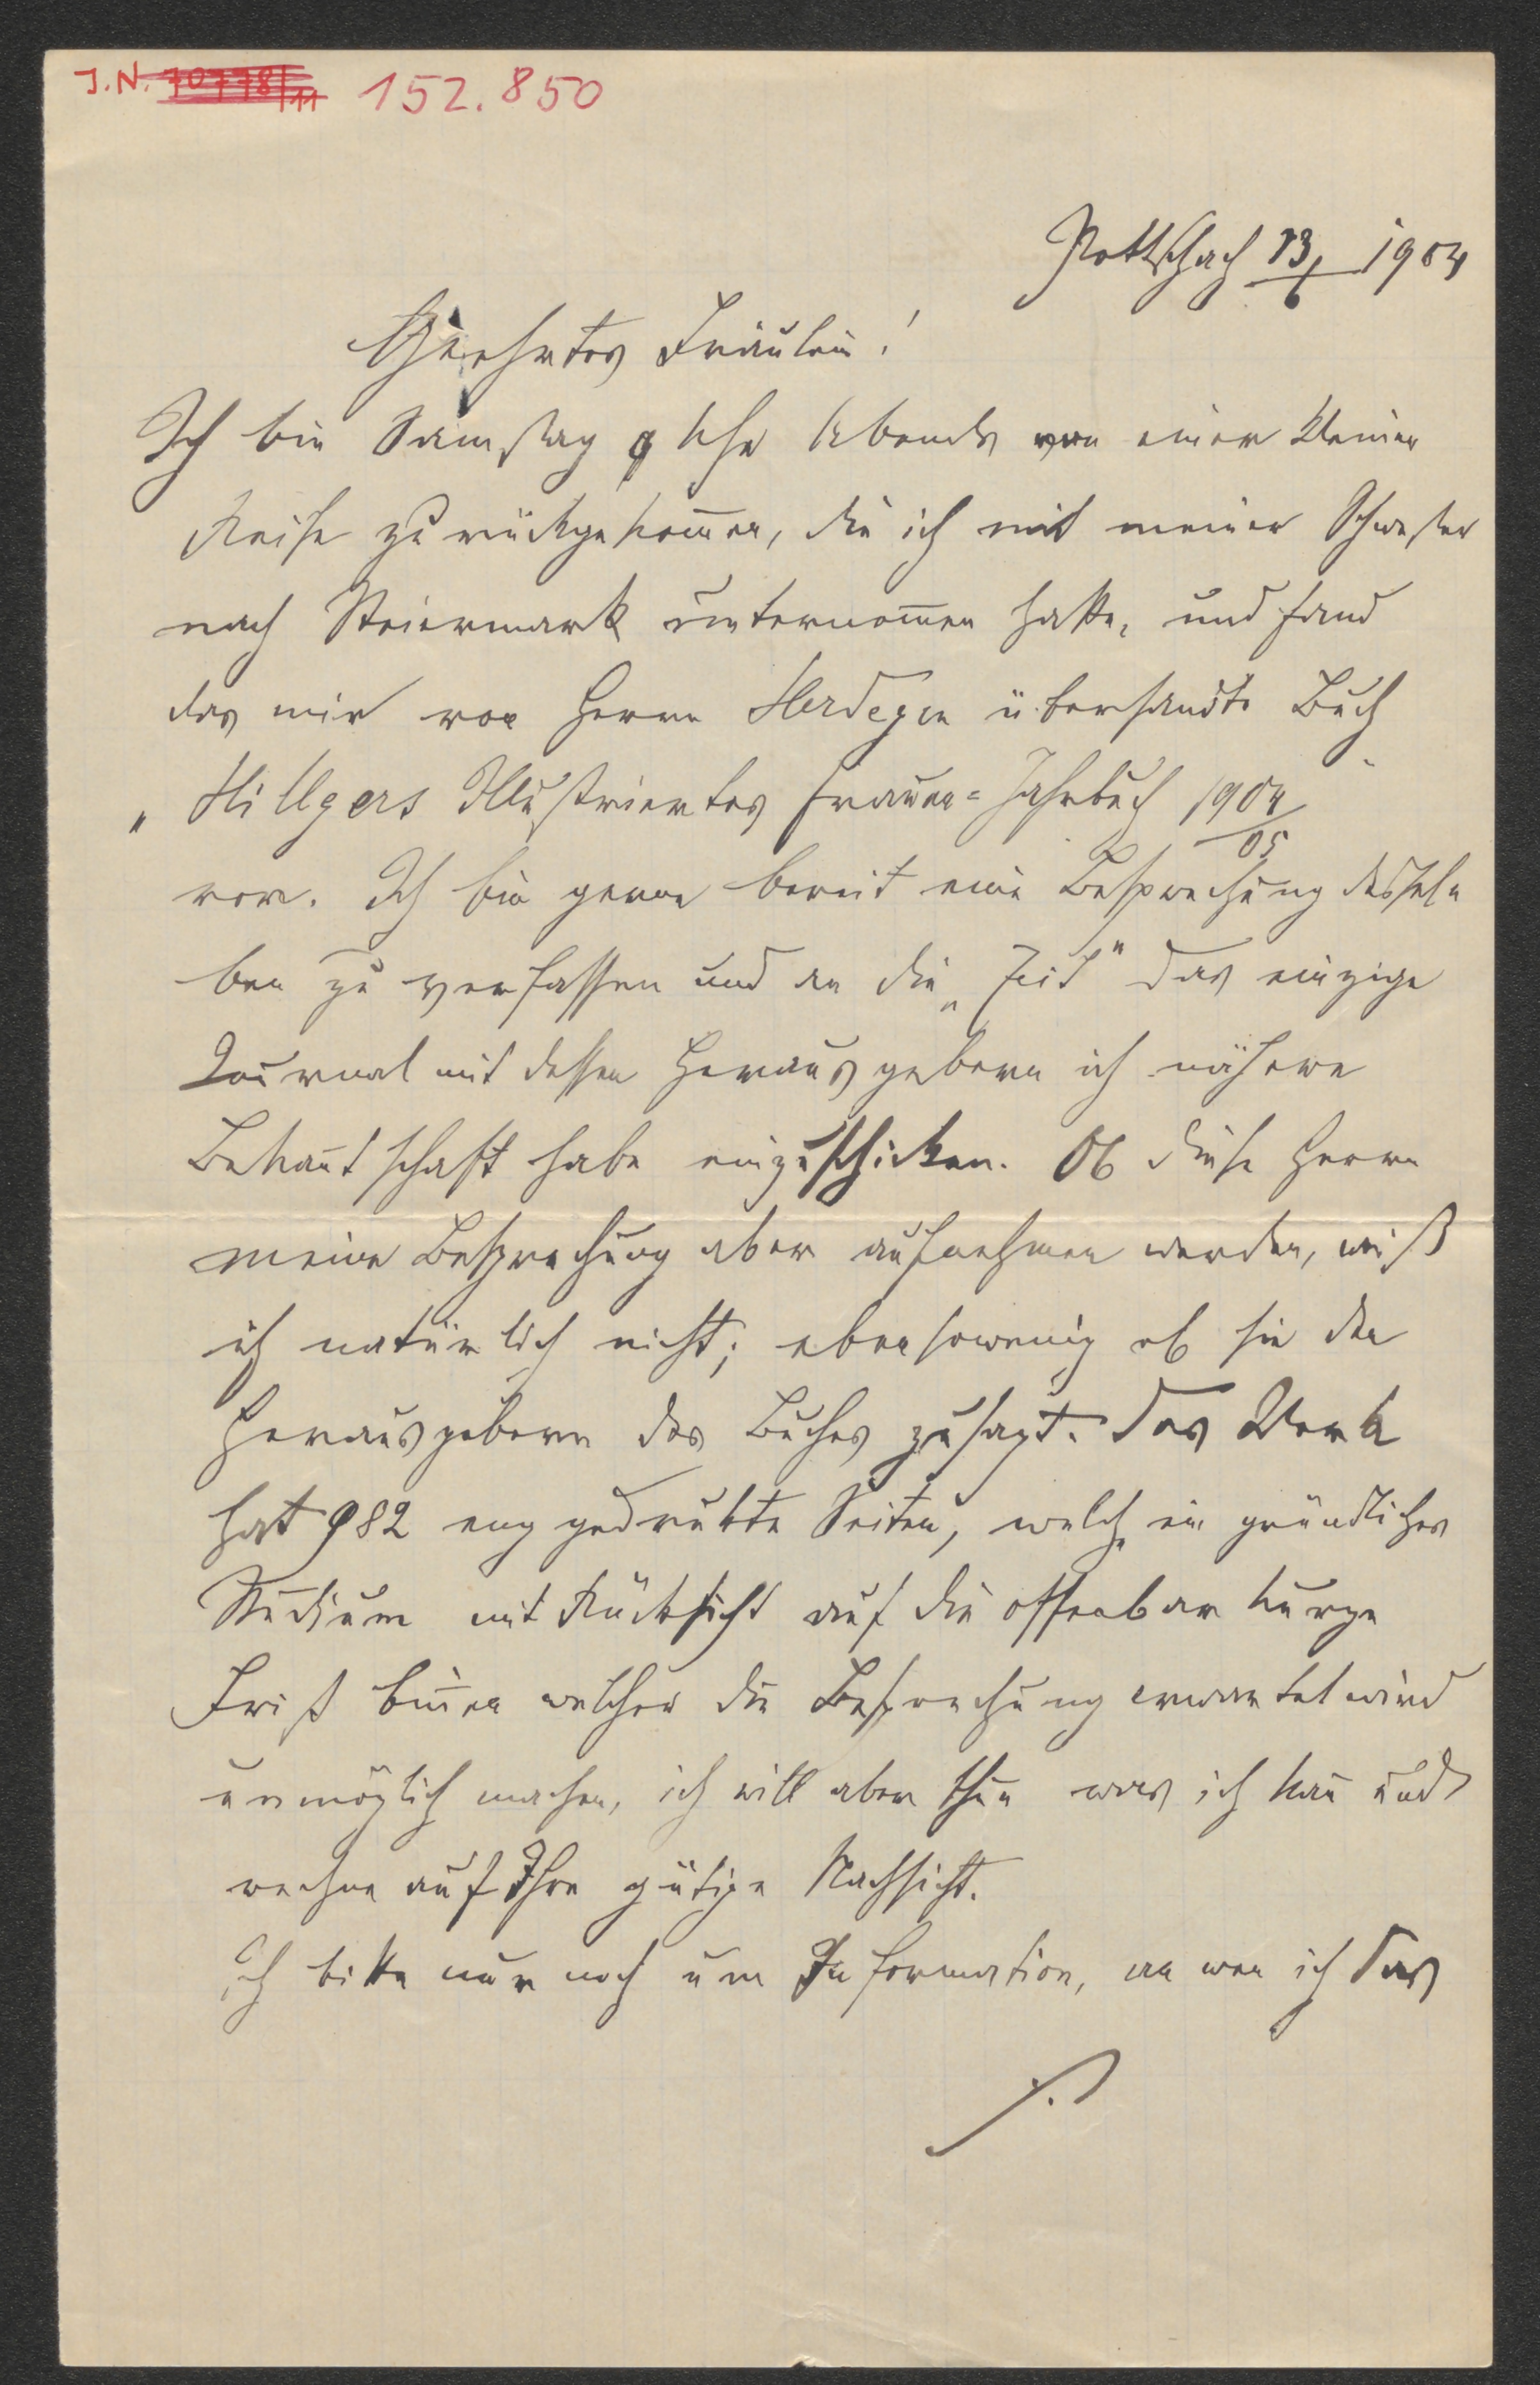 J.N. 70778/11 152.850
Pottschach 13/6 1904
Geehrtes Fräulein!
Ich bin Samstag 9 Uhr Abends von einer kleinen
Reise zurückgekom̅en, die ich mit meiner Schwester
nach Steiermark unternom̅en hatte, und fand
das mir von Herrn Herdegen übersandte Buch
„Hillgers Illustriertes Frauen-Jahrbuch 1904/05
vor. Ich bin gerne bereit eine Besprechung dessel-
ben zu verfassen und an die „Zeit" das einzige
Journal mit dessen Herausgebern ich nähere
Bekan̅tschaft habe einzuschicken. Ob diese Herrn
meine Besprechung aber aufnehmen werden, weiß
ich natürlich nicht; ebensowenig ob sie den
Herausgebern des Buches zusagt. Das Werk
hat 982 eng gedruckte Seiten, welche ein gründliches
Studium mit Rücksicht auf die offenbar kurze
Frist bin̅en welcher die Besprechung erwartet wird
unmöglich machen, ich will aber thun was ich kan̅ und
rechne auf Ihre gütige Nachsicht.
Ich bitte nur noch um Information, an wen ich das